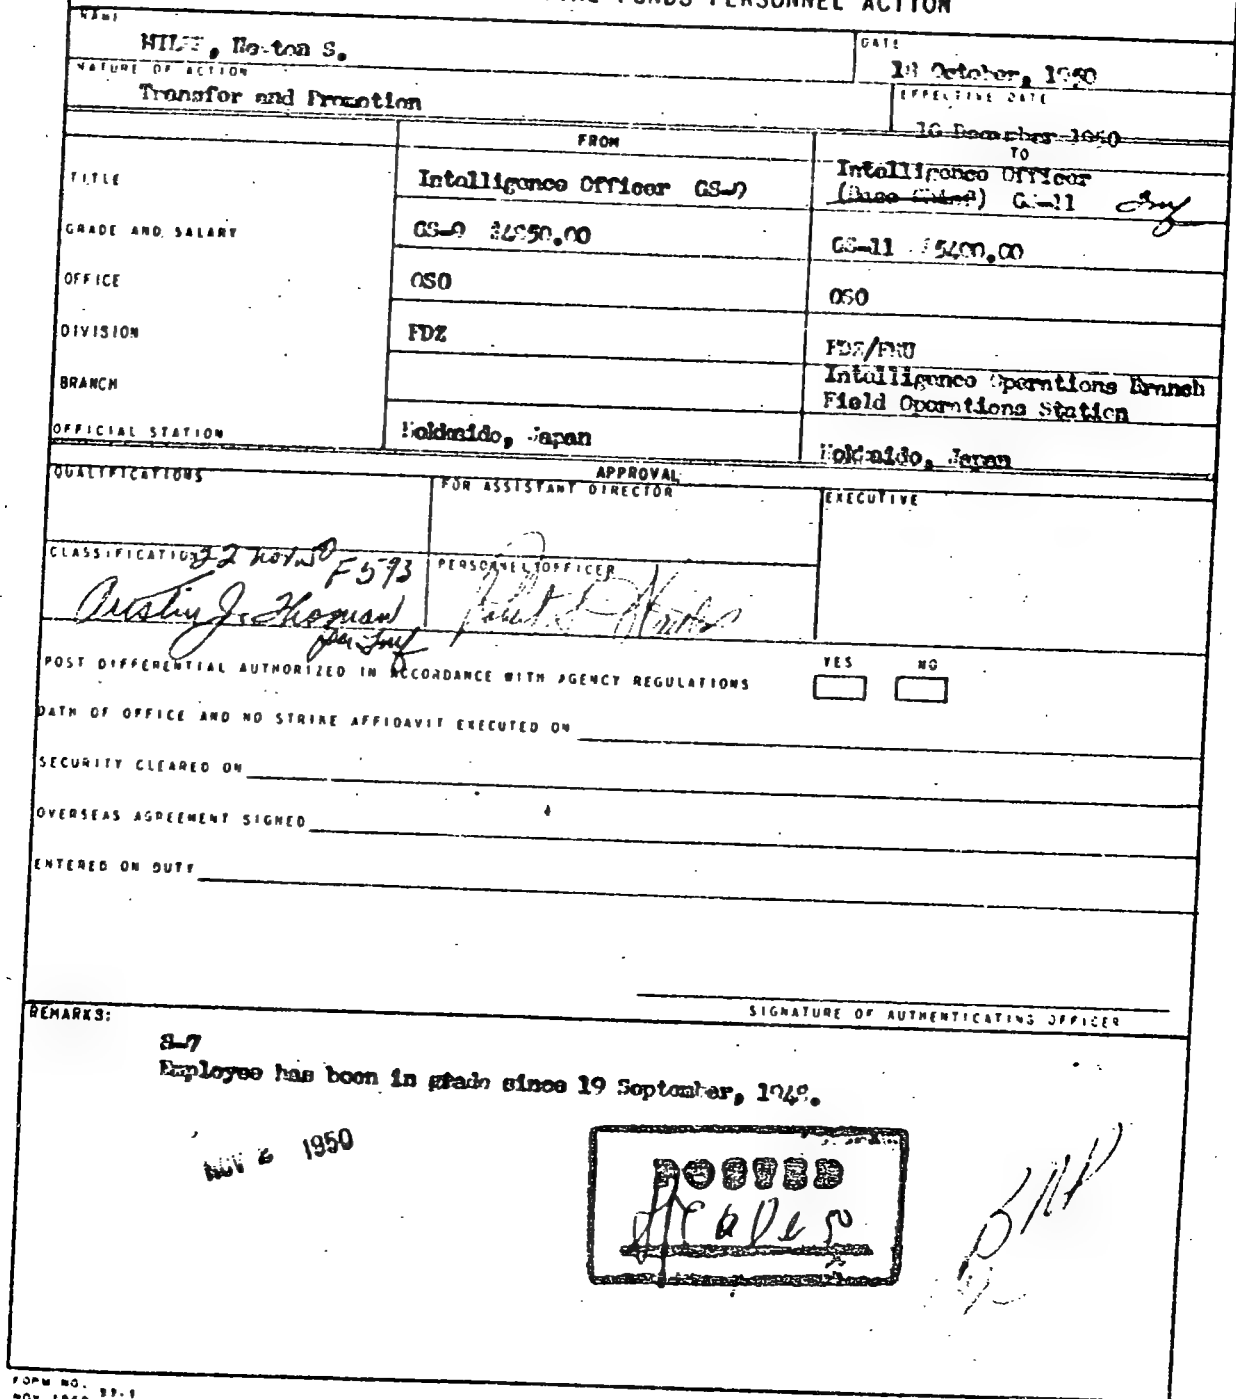 FUNDS PERSONNEL ACTION
NAME
S.
DATE
18 October, 1950
NATURE OF ACTION
Transfer and Promotion
EFFECTIVE DATE
10 December 1950
FROM
TO
TITLE
Intelligence Officer GS-9
Intelligence Officer
(Base Chief) GS-11
GRADE AND SALARY
GS-9
GS-11 $5400.00
OFFICE
OSO
OSO
DIVISION
FDZ
FDZ/FRU
BRANCH
Intelligence Operations Branch
Field Operations Station
OFFICIAL STATION
Hokkaido, Japan
Hokkaido, Japan
APPROVAL
QUALIFICATIONS
FOR ASSISTANT DIRECTOR
EXECUTIVE
CLASSIFICATION
22 Nov 50
F593
PERSONNEL OFFICER
Austin J.
POST DIFFERENTIAL AUTHORIZED IN ACCORDANCE WITH AGENCY REGULATIONS
YES NO
OATH OF OFFICE AND NO STRIKE AFFIDAVIT EXECUTED ON
SECURITY CLEARED ON
OVERSEAS AGREEMENT SIGNED
ENTERED ON DUTY
SIGNATURE OF AUTHENTICATING OFFICER
REMARKS:
S-7
Employee has been in grade since 19 September, 1948.
NOV 1950
POSTED
FORM NO.